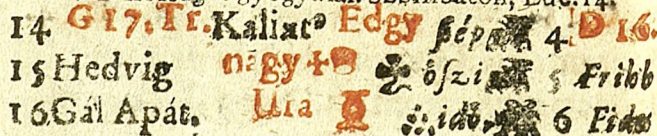 14 G 17. Tr. Kalixt⁹ Edgy ßép 4 D 16.
15 Hedvig nagy őszi 5 Fribb
16 Gál Apát. Ura idő 6 Fides